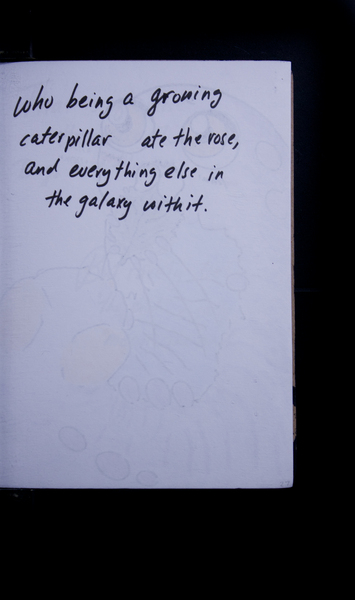 who being a growing
caterpillar ate the rose,
and everything else in
the galaxy with it.